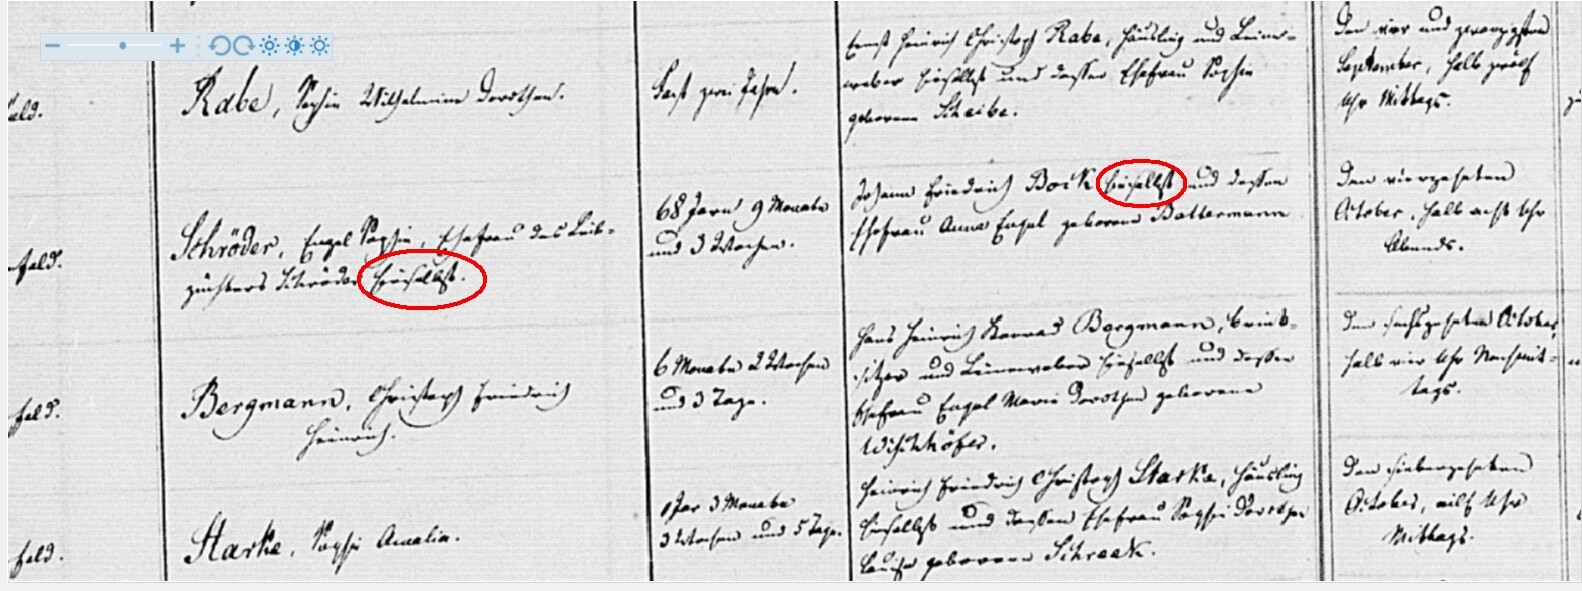 eld.
Rabe, Sophie Wilhelmine Dorothea.
Fast zwei Jahre.
Ernst Heinrich Christoph Rabe, Häusling und Leine-
weber hieselbst und dessen Ehefrau Sophie
geborene Scheibe.
Den vier und zwanzigsten
September, halb zwölf
Uhr Mittags.
feld.
Schröder, Engel Sophie, Ehefrau des Leib-
züchters Schröder hieselbst.
68 Jare 9 Monate
und 3 Wochen.
Johann Friedrich Bock hieselbst und dessen
Ehefrau Anna Engel geborene Battermann
Den vierzehnten
October, halb acht Uhr
Abends.
feld.
Bergmann, Christoph Friedrich
Heinrich.
6 Monate 2 Wochen
und 3 Tage.
Hans Heinrich Konrad Bergmann, Brink-
sitzer und Leineweber hieselbst und dessen
Ehefrau Engel Marie Dorothea geborene
Wischhöfer.
Den sechszehnten October,
halb vier Uhr Nachmit-
tags.
feld.
Starke, Sophie Amalie.
1 Jar 3 Monate
3 Wochen und 5 Tage.
Heinrich Friedrich Christoph Starke, Häusling
hieselbst und dessen Ehefrau Sophie Dorothea
Louise geborene Schraak.
Den siebenzehnten
October, eilf Uhr
Mittags.